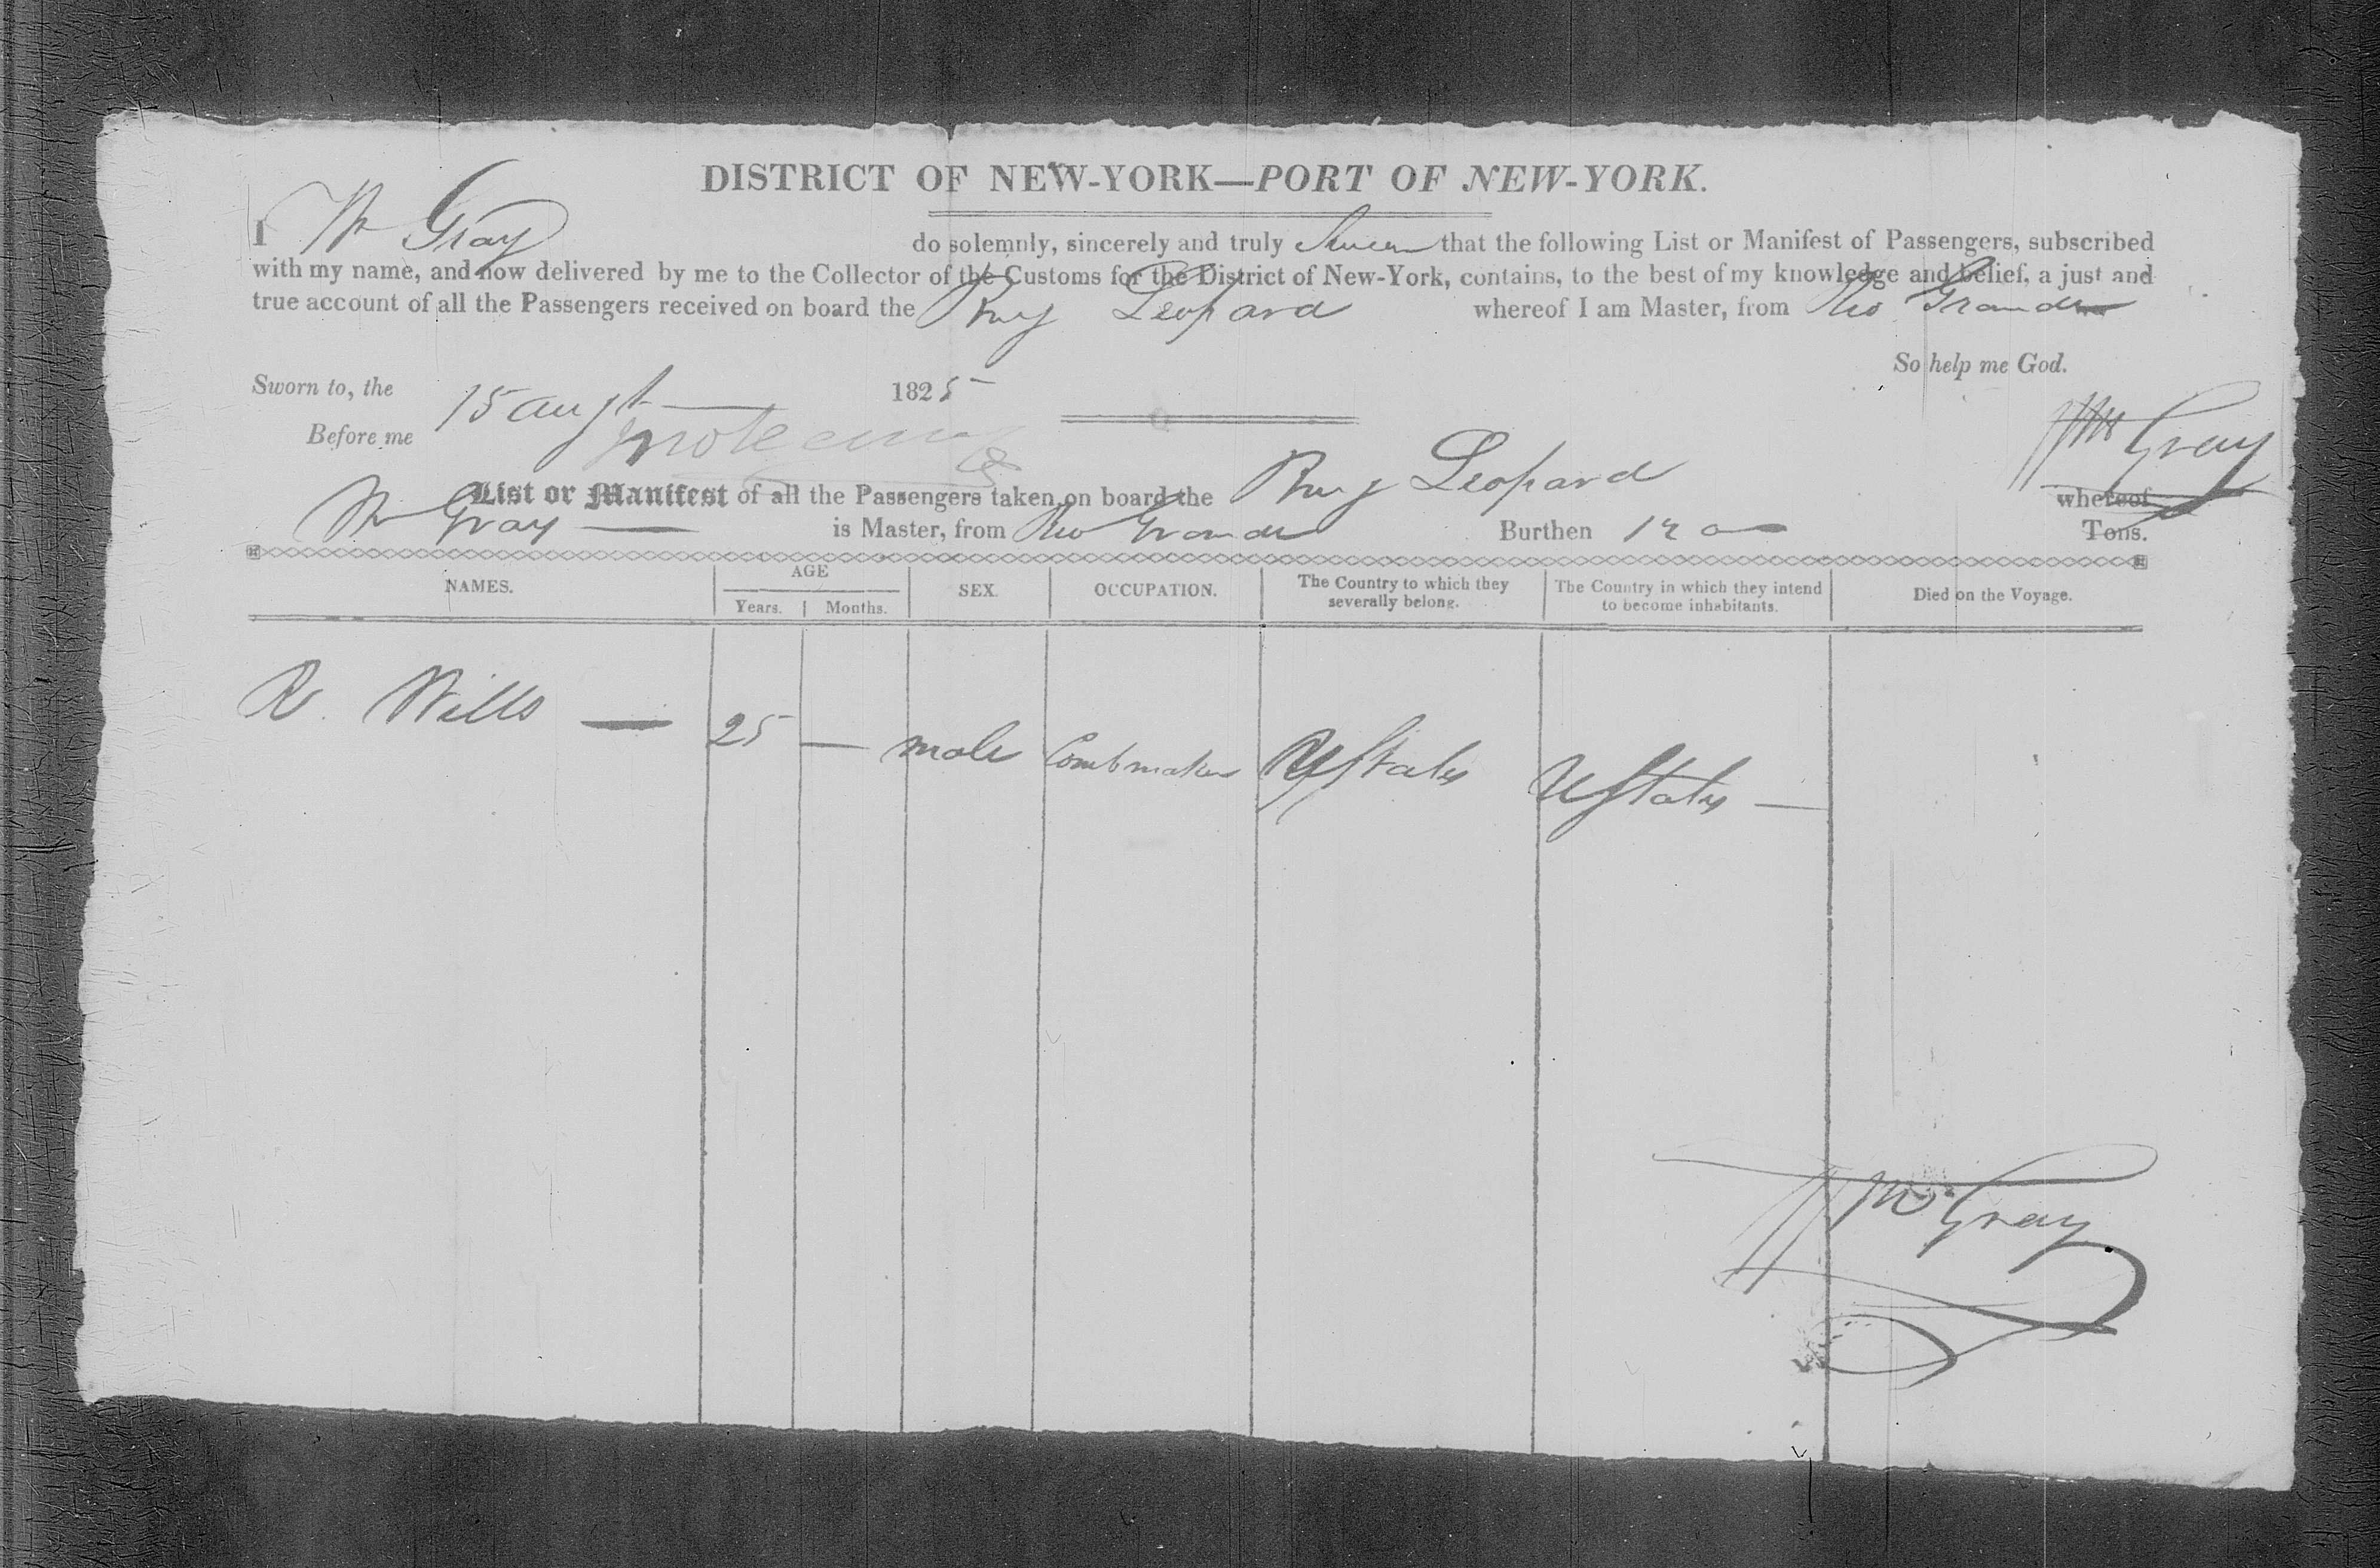 DISTRICT OF NEW-YORK—PORT OF NEW-YORK.
I Wm Gray do solemnly, sincerely and truly Swear that the following List or Manifest of Passengers, subscribed
with my name, and now delivered by me to the Collector of the Customs for the District of New-York, contains, to the best of my knowledge and belief, a just and
true account of all the Passengers received on board the Brig Leopard whereof I am Master, from Rio Grande
So help me God.
Sworn to, the 15 augt 1825
Before me
Wm Gray
List or Manifest of all the Passengers taken on board the Brig Leopard whereof
Wm Gray is Master, from Rio Grande Burthen Tons.
NAMES. AGE Years. Months. SEX. OCCUPATION. The Country to which they severally belong. The Country in which they intend to become inhabitants. Died on the Voyage.
R. Wills — 25 — male Combmaker UStates UStates —
Wm Gray